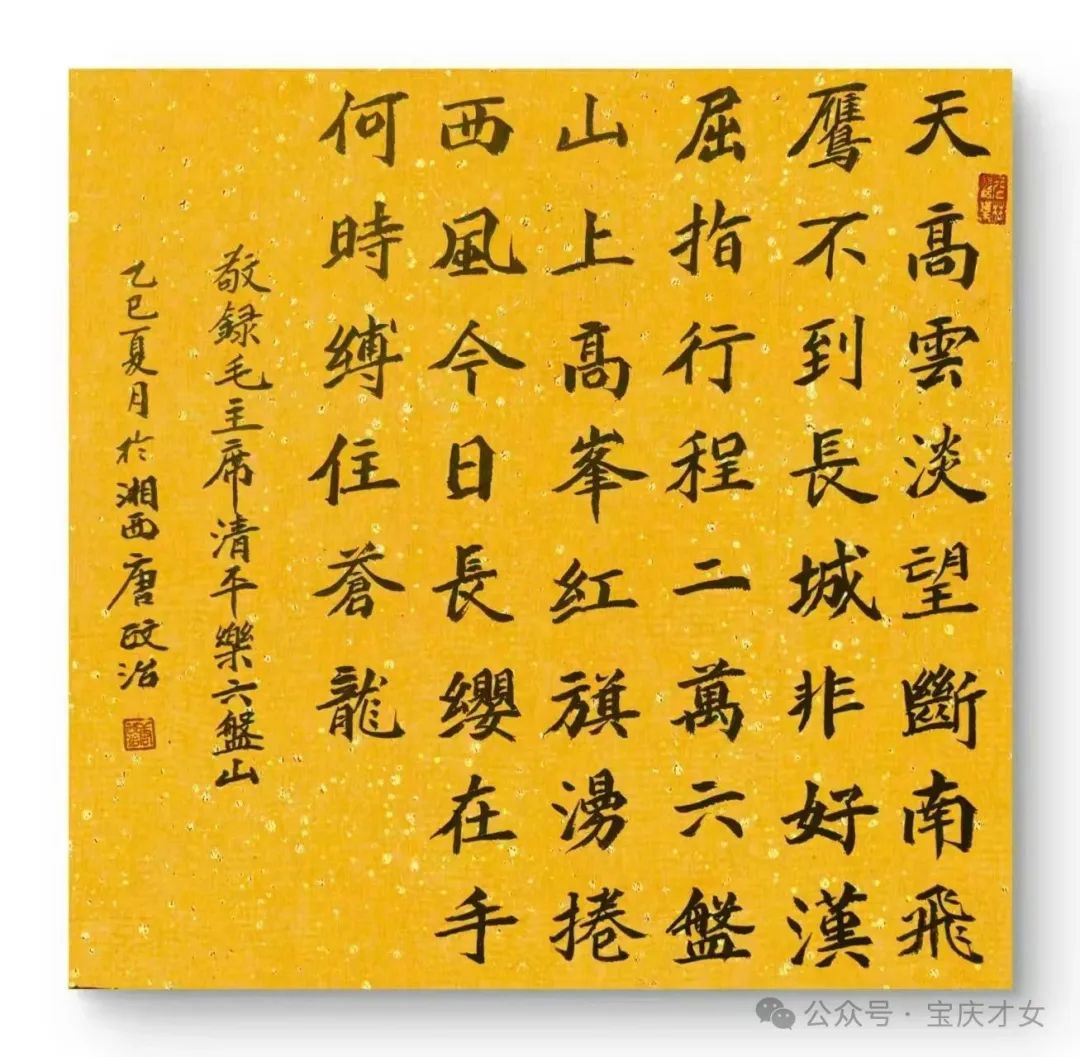 天髙雲淡望斷南飛
鷹不到長城非好漢
屈指行程二萬六盤
山上髙峯紅旗湧捲
西風今日長纓在手
何時縛住蒼龍
敬録毛主席清平樂六盤山
乙巳夏月於湘西唐政治
公众号·宝庆才女